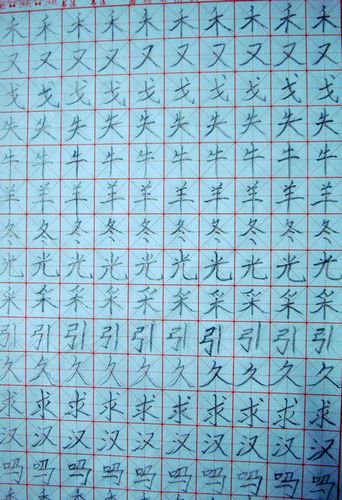 禾禾禾禾禾禾禾禾禾禾
又又又又又又又又又又
戈戈戈戈戈戈戈戈戈戈
失失失失失失失失失失
牛牛牛牛牛牛牛牛牛牛
羊羊羊羊羊羊羊羊羊羊
冬冬冬冬冬冬冬冬冬冬
光光光光光光光光光光
采采采采采采采采采采
引引引引引引引引引引
久久久久久久久久久久
求求求求求求求求求求
汉汉汉汉汉汉汉汉汉汉
吗吗吗吗吗吗吗吗吗吗